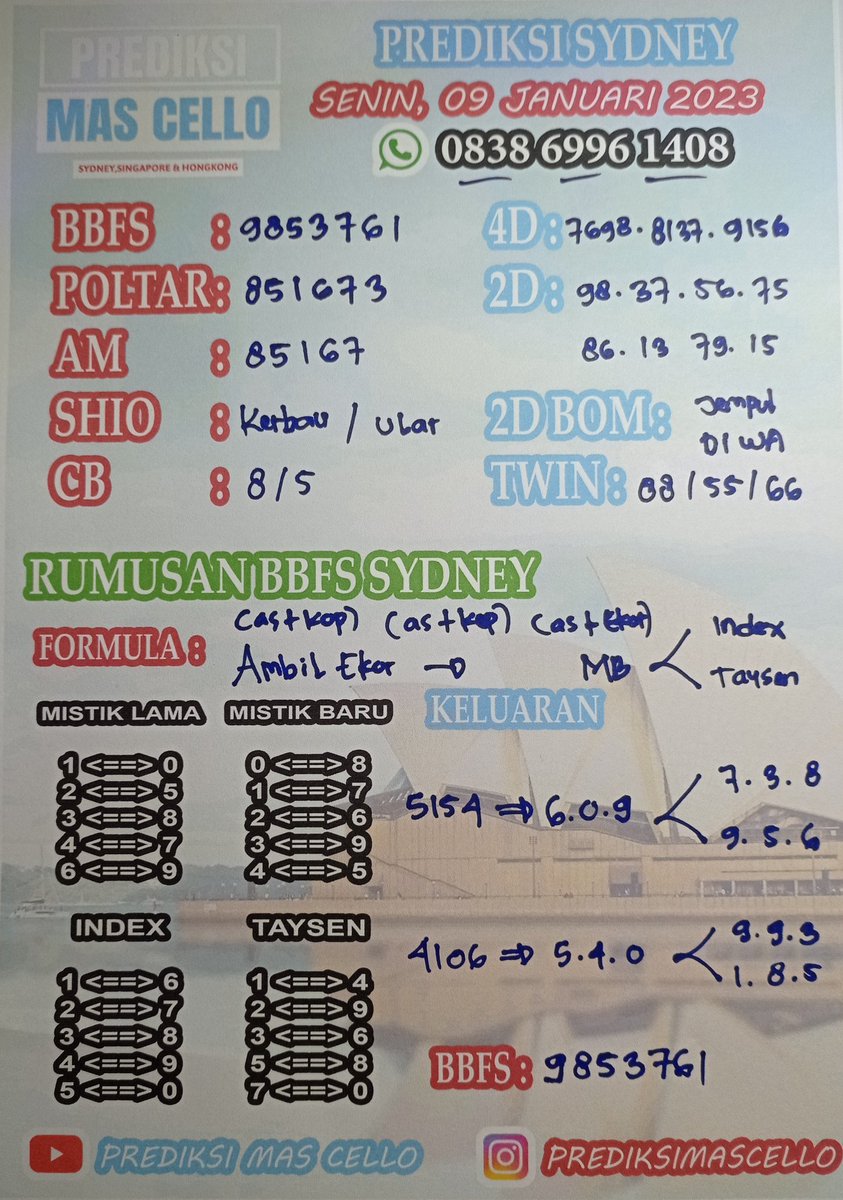 PREDIKSI
MAS CELLO
SYDNEY,SINGAPORE & HONGKONG
PREDIKSI SYDNEY
SENIN, 09 JANUARI 2023
0838 6996 1408
BBFS : 9853761
POLTAR: 851673
AM : 85167
SHIO : Kerbau / ular
CB : 8/5
4D: 7698. 8137. 9156
2D: 98. 37. 56. 75
86. 13 79. 15
2D BOM: Jemput
DI WA
TWIN: 88/55/66
RUMUSAN BBFS SYDNEY
FORMULA: (as+kop) (as+kop) (as+Ekor)
Ambil Ekor → MB < Index
Taysen
MISTIK LAMA
1<==>0
2<==>5
3<==>8
4<==>7
6<==>9
MISTIK BARU
0<==>8
1<==>7
2<==>6
3<==>9
4<==>5
KELUARAN
5154 ⇒ 6.0.9 < 7.3.8
9.5.6
INDEX
1<==>6
2<==>7
3<==>8
4<==>9
5<==>0
TAYSEN
1<==>4
2<==>9
3<==>6
5<==>8
7<==>0
4106 ⇒ 5.4.0 < 9.9.3
1.8.5
BBFS: 9853761
PREDIKSI MAS CELLO
PREDIKSIMASCELLO